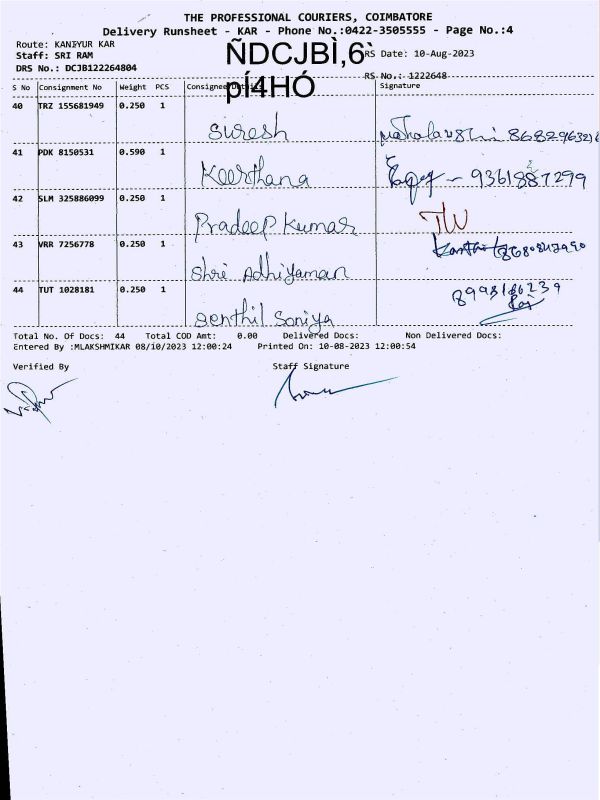 THE PROFESSIONAL COURIERS, COIMBATORE
Delivery Runsheet - KAR - Phone No.:0422-3505555 - Page No.:4
Route: KANIYUR KAR
Staff: SRI RAM
RS Date: 10-Aug-2023
DRS No.: DCJB122264804
RS No.: 1222648
ÑDCJBÌ,6`
pÍ4HÓ
S No Consignment No Weight PCS Consignee Details Signature
40 TRZ 155681949 0.250 1
Suresh
41 PDK 8150531 0.590 1
Keerthana 9361887299
42 SLM 325886099 0.250 1
Pradeep Kumar
43 VRR 7256778 0.250 1
Shri Adhiyaman
44 TUT 1028181 0.250 1
Senthil Soniya
Total No. Of Docs: 44 Total COD Amt: 0.00 Delivered Docs: Non Delivered Docs:
Entered By :MLAKSHMIKAR 08/10/2023 12:00:24 Printed On: 10-08-2023 12:00:54
Verified By Staff Signature